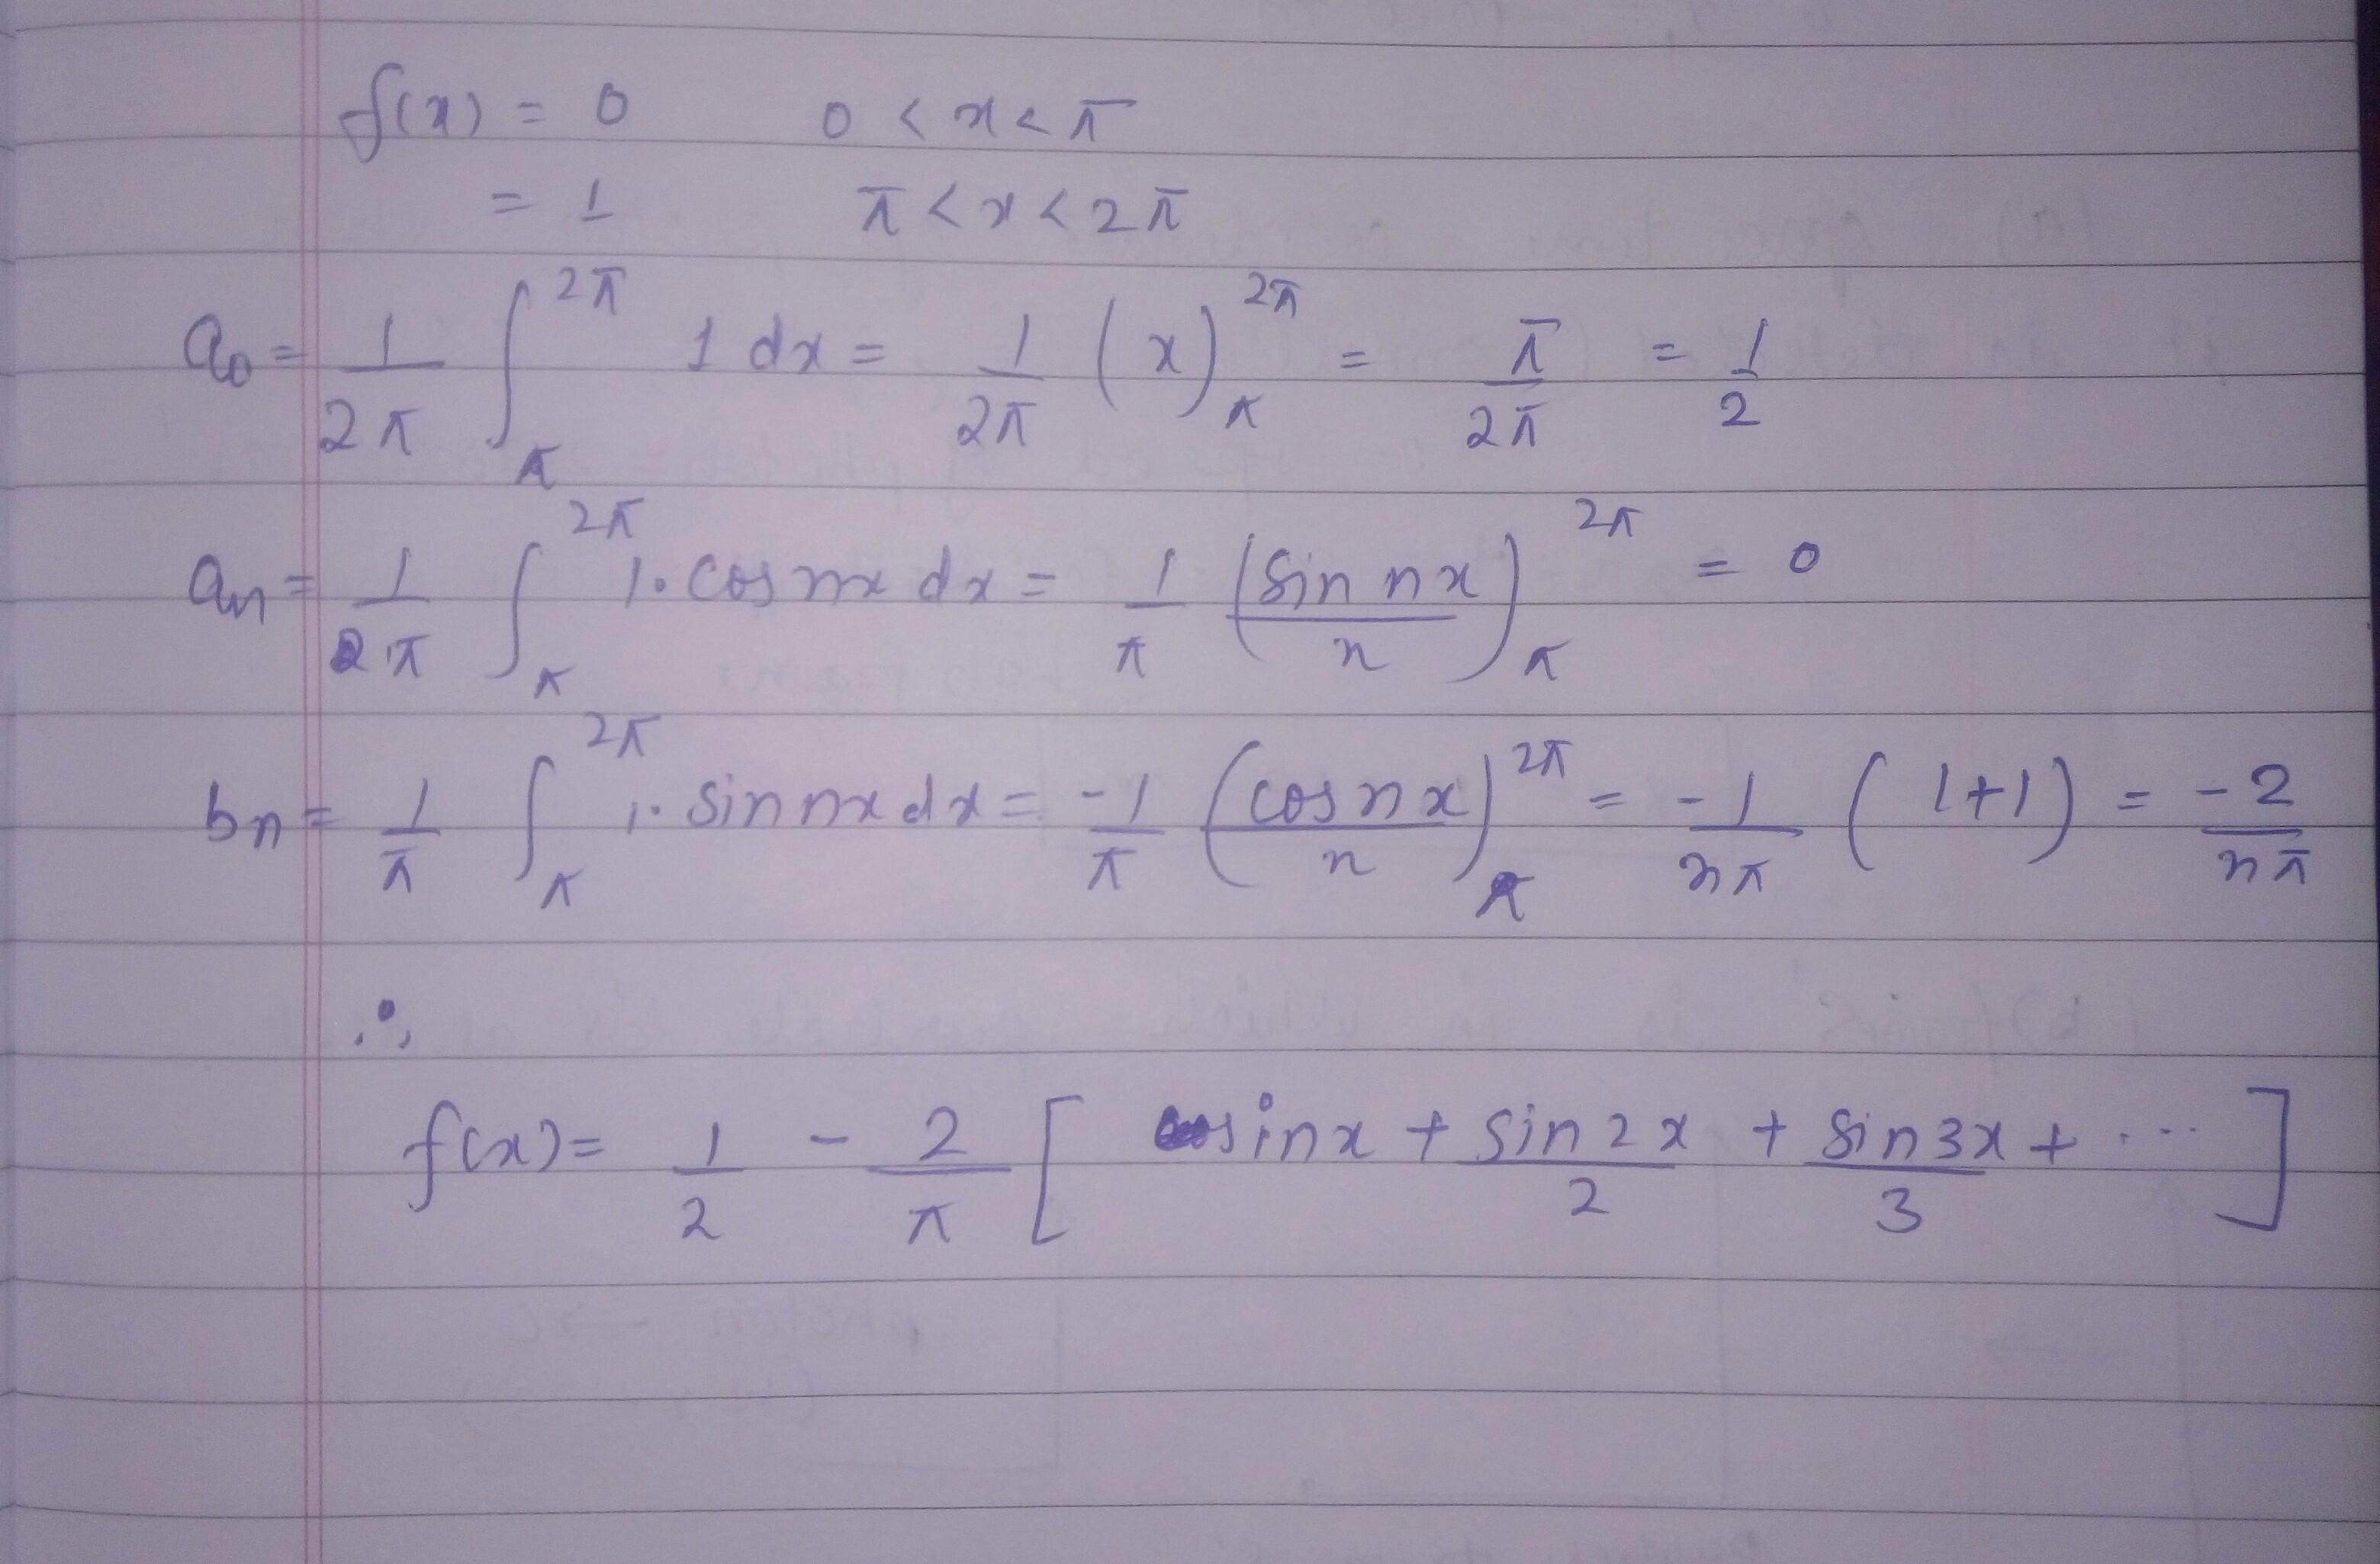 f(x) = 0    0 < x < π
= 1    π < x < 2π
a₀ = 1/2π ∫_π^2π 1 dx = 1/2π (x)_π^2π = π/2π = 1/2
aₙ = 1/2π ∫_π^2π 1. cos nx dx = 1/π (sin nx/n)_π^2π = 0
bₙ = 1/π ∫_π^2π 1. sin nx dx = -1/π (cos nx/n)_π^2π = -1/nπ (1+1) = -2/nπ
∴
f(x) = 1/2 - 2/π [ sin x + sin 2x/2 + sin 3x/3 + ... ]